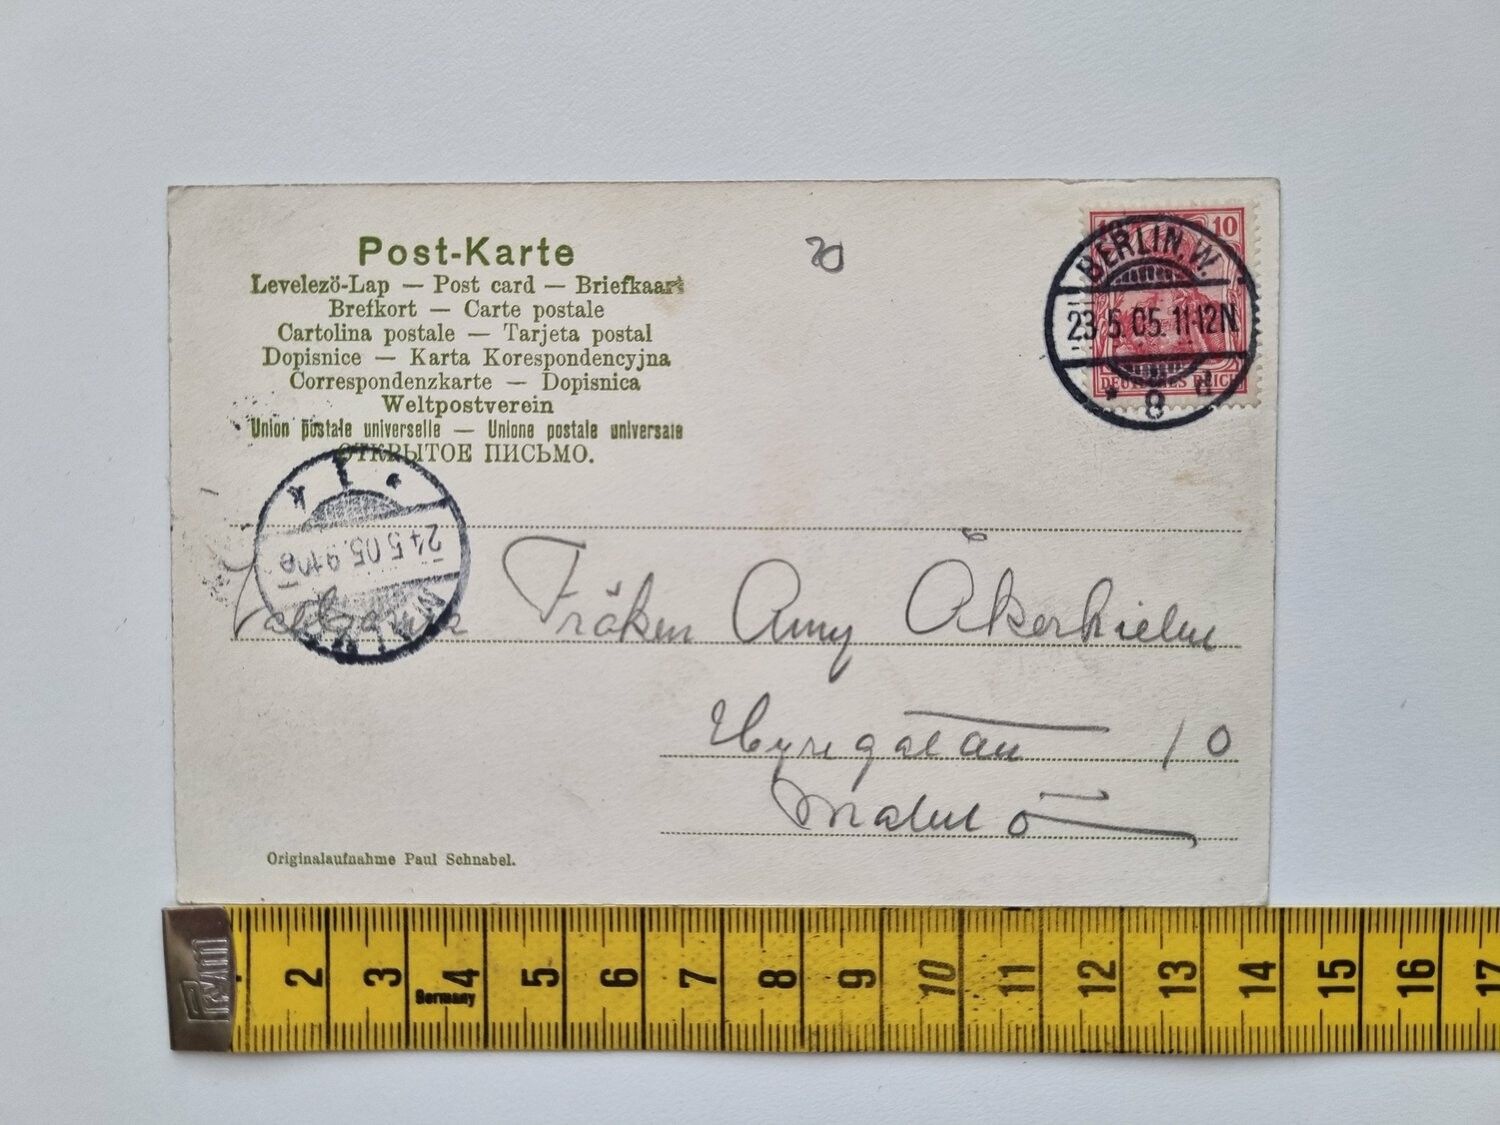 Post-Karte
Levelezö-Lap — Post card — Briefkaart
Brefkort — Carte postale
Cartolina postale — Tarjeta postal
Dopisnice — Karta Korespondencyjna
Correspondenzkarte — Dopisnica
Weltpostverein
Union postale universelle — Unione postale universale
ОТКРЫТОЕ ПИСЬМО.
20
10 10
BERLIN. W.
23 5. 05. 11-12N
* 8 d
DEUTSCHES REICH
24 5 05
Fröken Amy Åkerhielm
10
Malmö
Originalaufnahme Paul Schnabel.
2 3 4 5 6 7 8 9 10 11 12 13 14 15 16 17
Germany